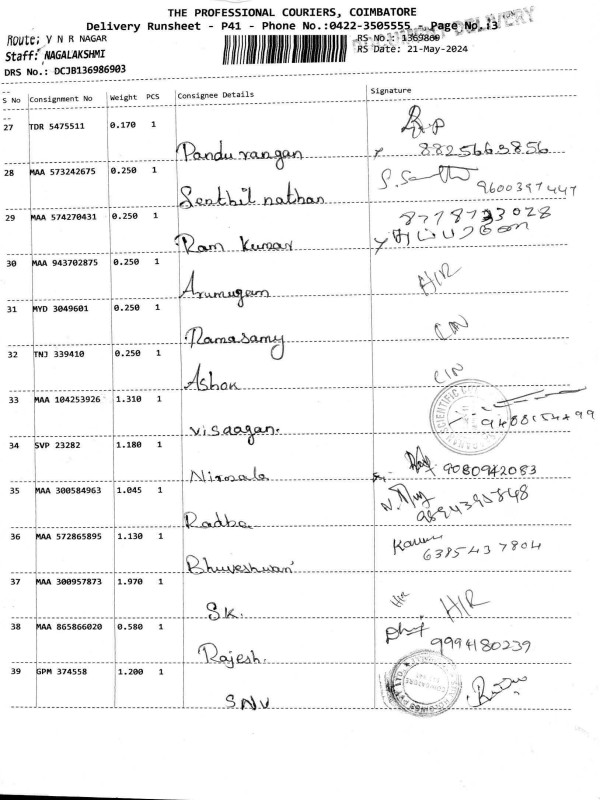 THE PROFESSIONAL COURIERS, COIMBATORE
Delivery Runsheet - P41 - Phone No.:0422-3505555 - Page No.:3
Route: V N R NAGAR
RS No.: 1369869
Staff: NAGALAKSHMI
RS Date: 21-May-2024
DRS No.: DCJB136986903
S No Consignment No Weight PCS Consignee Details Signature
27 TDR 5475511 0.170 1
Pandu rangan 8825663856
28 MAA 573242675 0.250 1
Senthil nathan 9600397447
29 MAA 574270431 0.250 1 8778733028
Ram Kumar
30 MAA 943702875 0.250 1
Arumugam H/R
31 MYD 3049601 0.250 1
Ramasamy C/N
32 TNJ 339410 0.250 1
Ashok C/N
33 MAA 104253926 1.310 1
visaagan.
34 SVP 23282 1.180 1
Nirmala 9080942083
35 MAA 300584963 1.045 1
Radha 9894395848
36 MAA 572865895 1.130 1
Bhuveshwari 6385437804
37 MAA 300957873 1.970 1
SK. H/R H/R
38 MAA 865866020 0.580 1
Rajesh. 9994180239
39 GPM 374558 1.200 1
SNV